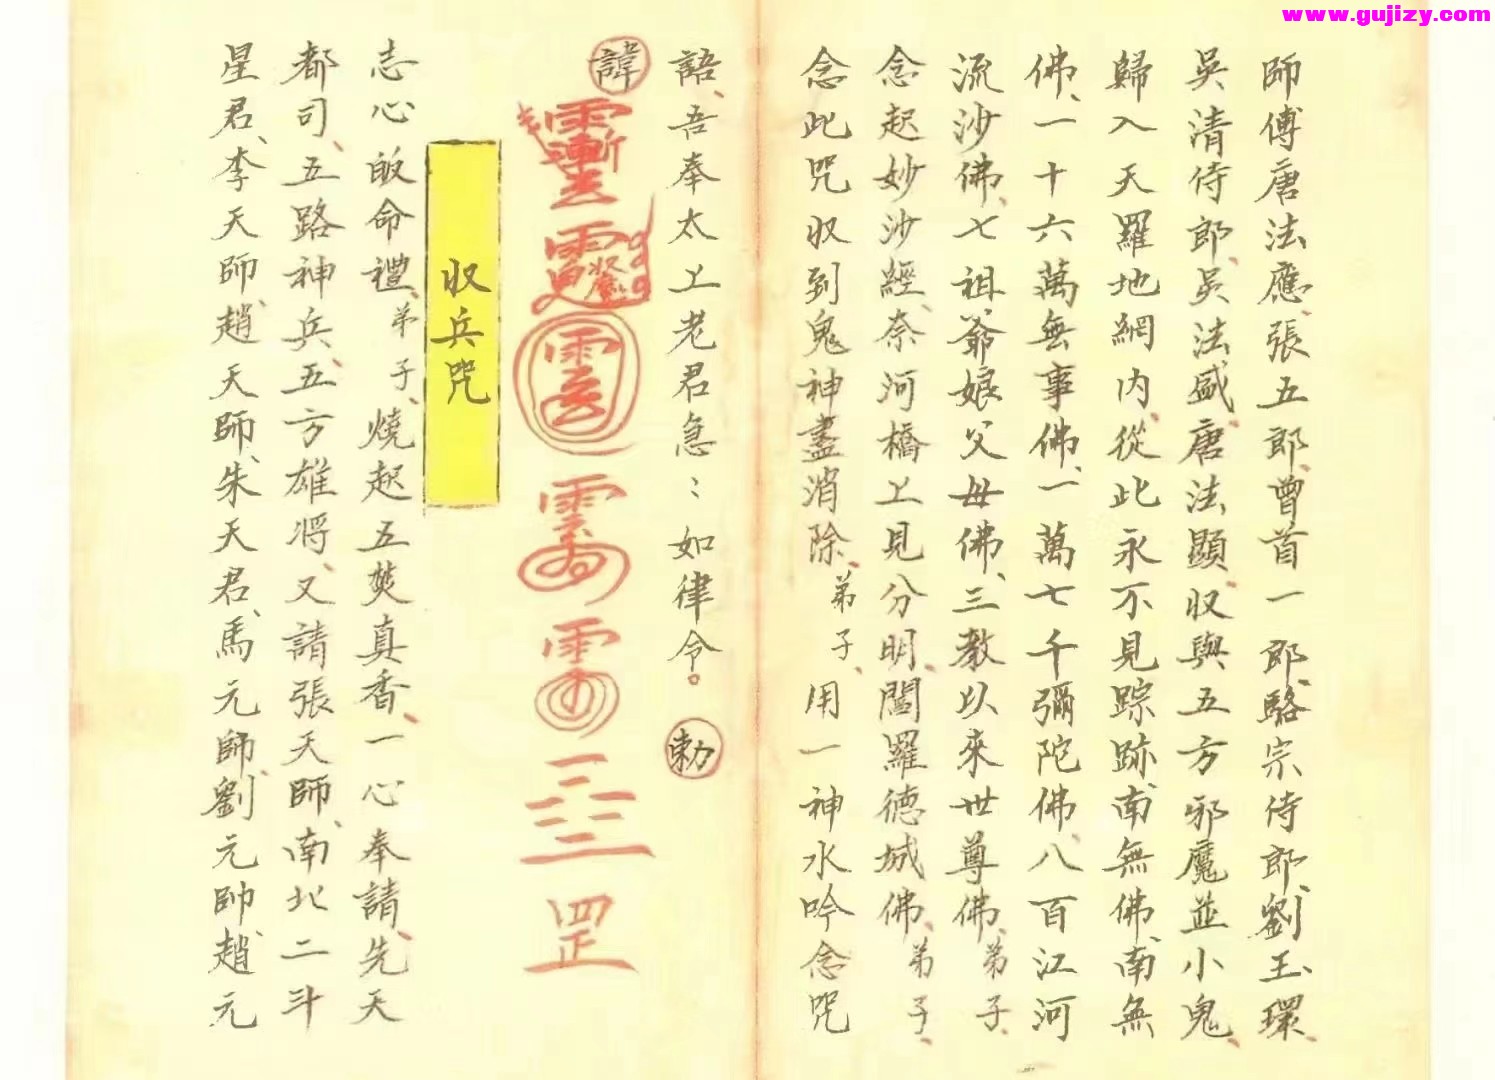 www.gujizy.com
師傅唐法應、張五郎、曾首一郎、駱宗侍郎、劉玉環、
吳清侍郎、吳法盛、唐法顯、收與五方邪魔並小鬼、
歸入天羅地網內、從此永不見踪跡、南無佛、南無
佛、一十六萬無事佛、一萬七千彌陀佛、八百江河
流沙佛、七祖、爺娘父母佛、三教以來世尊佛、弟子、
念起妙沙經、奈河橋上見分明、閶羅德城佛、弟子、
念此咒收到鬼神盡消除、弟子、用一神水吟念咒
語、吾奉太上老君急〻如律令。勅
諱
罡
收兵咒
志心皈命禮、弟子、燒起五焚真香、一心奉請、先天
都司、五路神兵、五方雄將、又請張天師、南北二斗
星君、李天師、趙天師、朱天君、馬元師、劉元帥、趙元